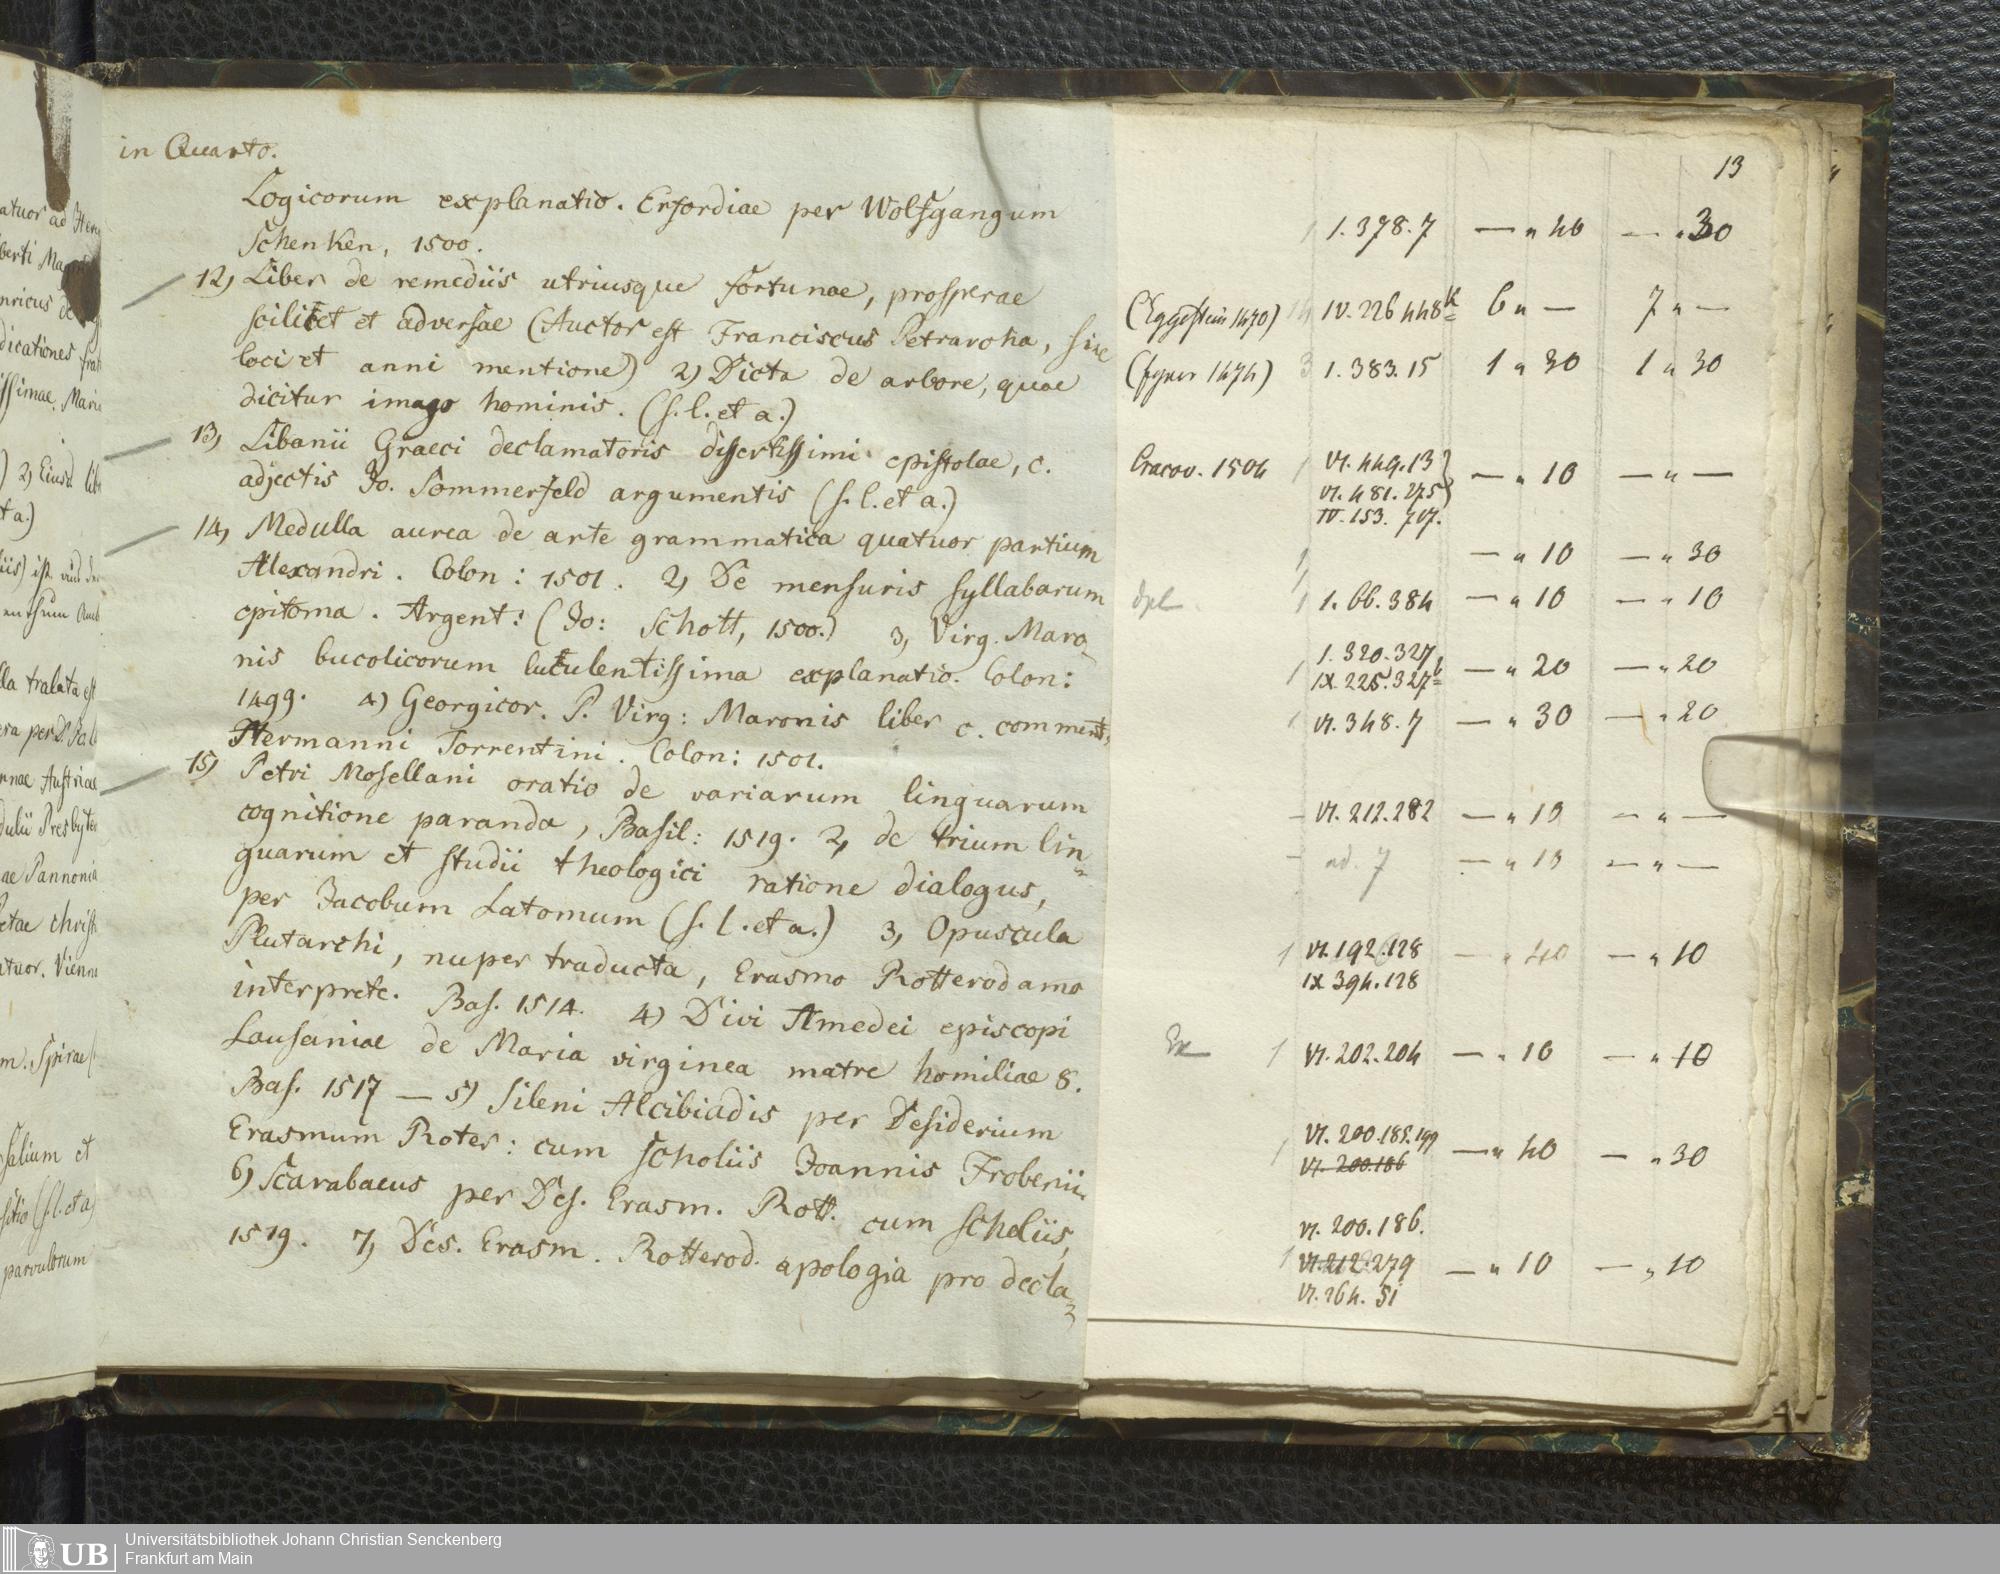 in Quarto.
13
Logicorum explanatio. Erfordiae per Wolfgangum
Schenken, 1500.
1 1.378.7 — " 40 — " 30
12) Liber de remediis utriusque fortunae, prosperae
scilicet et adversae (Auctor est Franciscus Petrarcha, sine
(Eggestein 1470) 14 IV.226 448 6 " — 7 " —
loci et anni mentione) 2) Dicta de arbore, quae
dicitur imago hominis. (s.l. et a.)
1474) 3 1.383.15 1 " 30 1 " 30
13) Libanii Graeci declamatoris disertissimi epistolae, c.
adjectis Jo. Sommerfeld argumentis (s.l. et a.)
Cracov. 1504 1 VI.449.13 — " 10 — " —
VI.481.275
IV.153. 707.
14) Medulla aurea de arte grammatica quatuor partium
Alexandri. Colon: 1501. 2) De mensuris syllabarum
1 — " 10 — " 30
epitoma. Argent: (Jo: Schott, 1500.) 3, Virg. Maro-
dpl 1 1.66.384 — " 10 — " 10
nis bucolicorum luculentissima explanatio. Colon:
1499. 4) Georgicor. P. Virg: Maronis liber c. comment,
1 1.320.327 — " 20 — " 20
IX.225.327b
Hermanni Torrentini. Colon: 1501.
1 VI.348.7 — " 30 — " 20
15) Petri Mosellani oratio de variarum linguarum
cognitione paranda, Basil: 1519. 2, de trium lin=
– VI.212.282 — " 10 — " —
guarum et studii theologici ratione dialogus,
per Jacobum Latomum (s.l. et a.) 3, Opuscula
– ad. 7 — " 13 — " —
Plutarchi, nuper traducta, Erasmo Rotterodamo
interprete. Bas. 1514. 4) Divi Amedei episcopi
1 VI.192.128 — " 40 — " 10
IX 394.128
Lausaniae de Maria virginea matre homiliae 8.
1 VI.202.204 — " 10 — " 10
Bas. 1517 — 5) Sileni Alcibiadis per Desiderium
Erasmum Roter: cum scholiis Joannis Frobenii.
1 VI.200.185.199 — " 40 — " 30
VI.200.186
6) Scarabaeus per Des. Erasm. Rott. cum scholiis,
1519. 7, Des. Erasm. Rotterod. apologia pro decla=
VI.200.186.
1 VI.212.279 — " 10 — " 10
VI.264.51
Universitätsbibliothek Johann Christian Senckenberg
Frankfurt am Main
UB